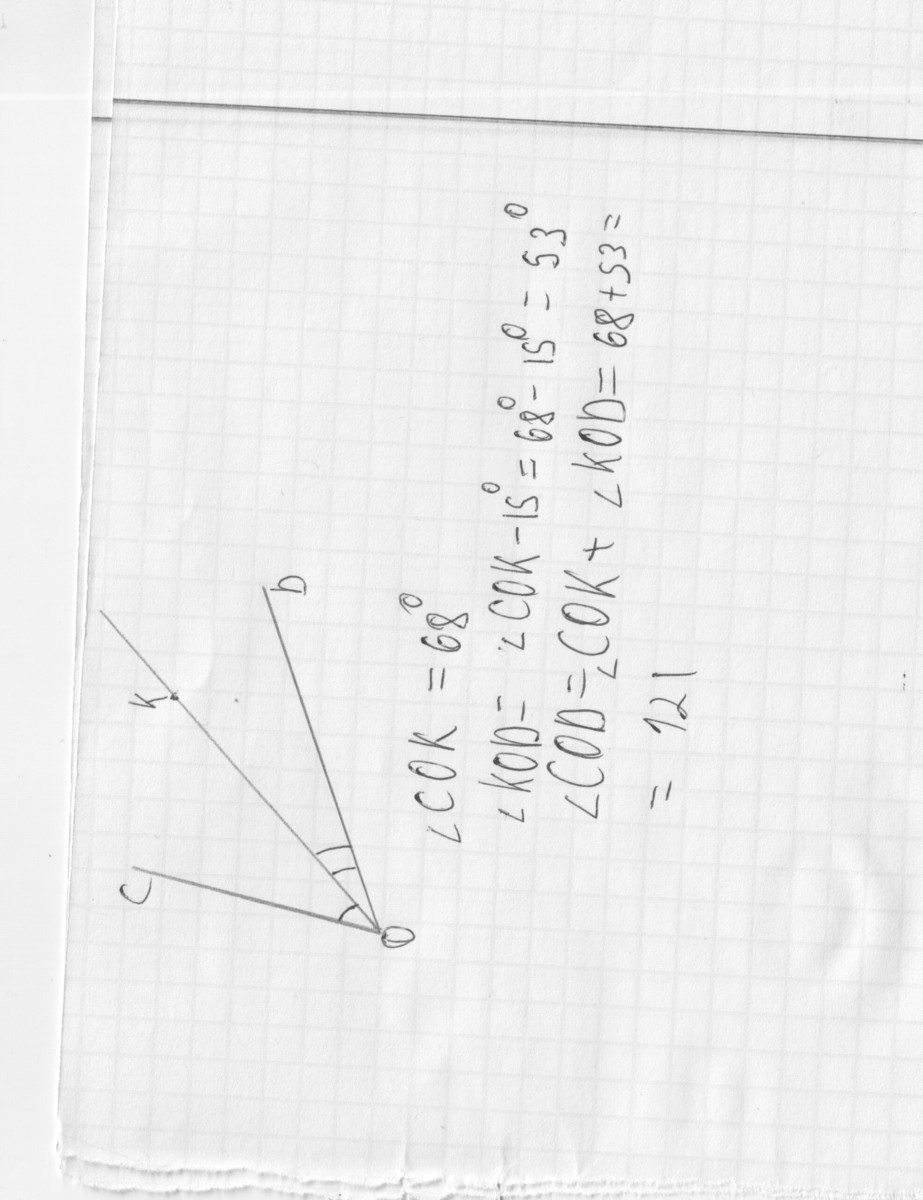 C
K
D
O
∠COK = 68°
∠KOD = ∠COK - 15° = 68° - 15° = 53°
∠COD = ∠COK + ∠KOD = 68 + 53 =
= 121